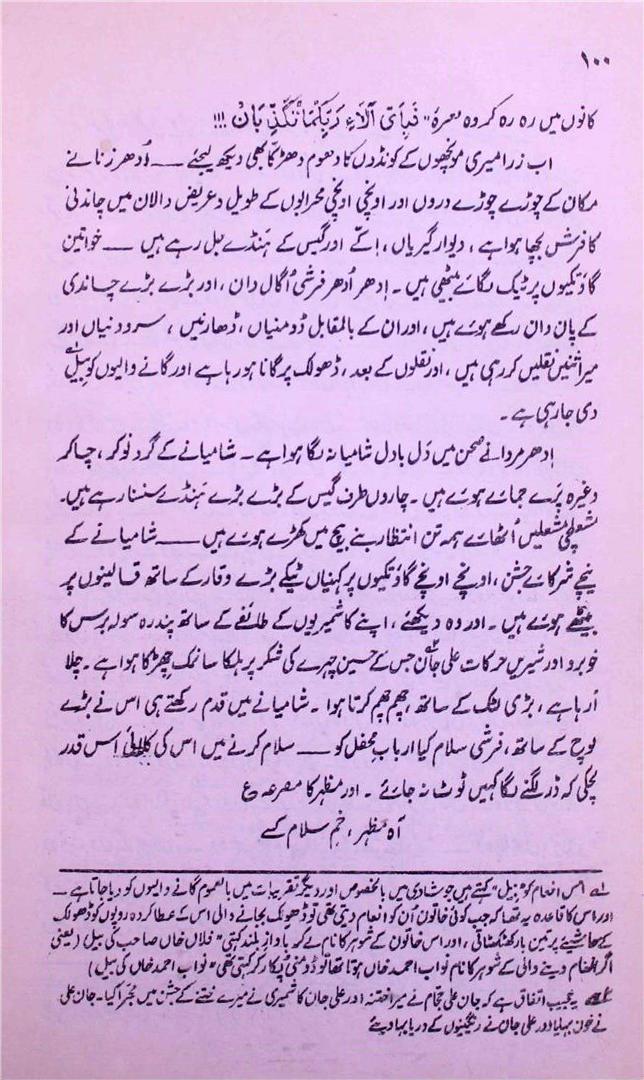 ۱۰۰
کانوں میں رہ رہ کر وہ نعرہ "فَبِاَیِّ اٰلَاءِ رَبِّکُمَا تُکَذِّبَانْ !!!
اب زرا میری مونچھوں کے کونڈوں کا دھوم دھڑکا بھی دیکھ لیجئے ــــ اُدھر زنانے
مکان کے چوڑے چوڑے دروں اور اونچی اونچی محرابوں کے طویل و عریض دالان میں چاندنی
کا فرش بچھا ہوا ہے، دیوار گیریاں، اِکّے اور گیس کے ہنڈے جل رہے ہیں ــــ خواتین
گاؤ تکیوں پر ٹیک لگائے بیٹھی ہیں۔ اِدھر اُدھر فرشی اُگال دان، اور بڑے بڑے چاندی
کے پان دان رکھے ہوئے ہیں، اور ان کے بالمقابل ڈومنیاں، ڈھارنیں، سرودنیاں اور
میراثنیں نقلیں کر رہی ہیں، اور نقلوں کے بعد، ڈھولک پر گانا ہو رہا ہے اور گانے والیوں کو بیل؂۱
دی جا رہی ہے۔
اِدھر مردانے صحن میں دَل بادل شامیانہ لگا ہوا ہے۔ شامیانے کے گرد نوکر، چاکر
وغیرہ پَرے جمائے ہوئے ہیں۔ چاروں طرف گیس کے بڑے بڑے ہنڈے سنسنا رہے ہیں۔
مشعلچی مشعلیں اُٹھائے ہمہ تن انتظار بنے بیچ میں کھڑے ہوئے ہیں ــــ شامیانے کے
نیچے شرکائے جشن، اونچے اونچے گاؤ تکیوں پر کہنیاں ٹیکے بڑے وقار کے ساتھ قالینوں پر
بیٹھے ہوئے ہیں۔ اور وہ دیکھئے، اپنے کاشمیریوں کے طائفے کے ساتھ پندرہ سولہ برس کا
خوبرو اور شیریں حرکات علی جان؂۲ جس کے حسین چہرے کی شکر پر ہلکا سا نمک چھڑکا ہوا ہے۔ چلا
آ رہا ہے، بڑی لٹک کے ساتھ، چھم چھم کرتا ہوا۔ شامیانے میں قدم رکھتے ہی اس نے بڑے
لوچ کے ساتھ، فرشی سلام کیا اربابِ محفل کو ــــ سلام کرنے میں اس کی کلائی اس قدر
لچکی کہ ڈر لگنے لگا کہیں ٹوٹ نہ جائے۔ اور مظہر کا مصرعہ ع
آہ مظہر، خمِ سلام کسے
؂۱ اس انعام کو "بیل" کہتے ہیں جو شادی میں بالخصوص اور دیگر تقریبات میں بالعموم گانے والیوں کو دیا جاتا ہے ــ
اور اس کا قاعدہ یہ تھا کہ جب کوئی خاتون اُن کو انعام دیتی تھی تو ڈھولک بجانے والی اس کے عطا کردہ روپوں کو ڈھولک
کے حاشیے پر تین بار کھٹکھٹاتی، اور اس خاتون کے شوہر کا نام لے کر بآوازِ بلند کہتی "فلاں خاں صاحب کی بیل (یعنی
اگر انعام دینے والی کے شوہر کا نام نواب احمد خاں ہوتا تھا تو ڈومنی پکار کر کہتی تھی "نواب احمد خاں کی بیل)
؂۲ یہ عجیب اتفاق ہے کہ جان علی حجام نے میرا ختنہ اور علی جان کاشمیری نے میرے ختنے کے جشن میں مُجرا کیا۔ جان علی
نے خون بہایا اور علی جان نے رنگینیوں کے دریا بہا دیئے